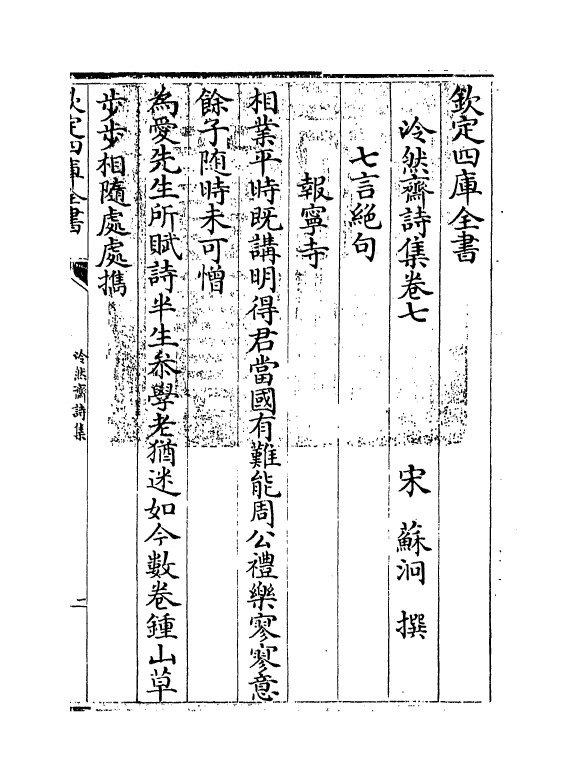 欽定四庫全書
泠然齋詩集卷七
宋 蘇泂 撰
七言絶句
報寧寺
相業平時既講明得君當國有難能周公禮樂寥寥意
餘子随時未可憎
為愛先生所賦詩半生叅學老猶迷如今數卷鍾山草
步步相隨處處攜
欽定四庫全書
泠然齋詩集
二